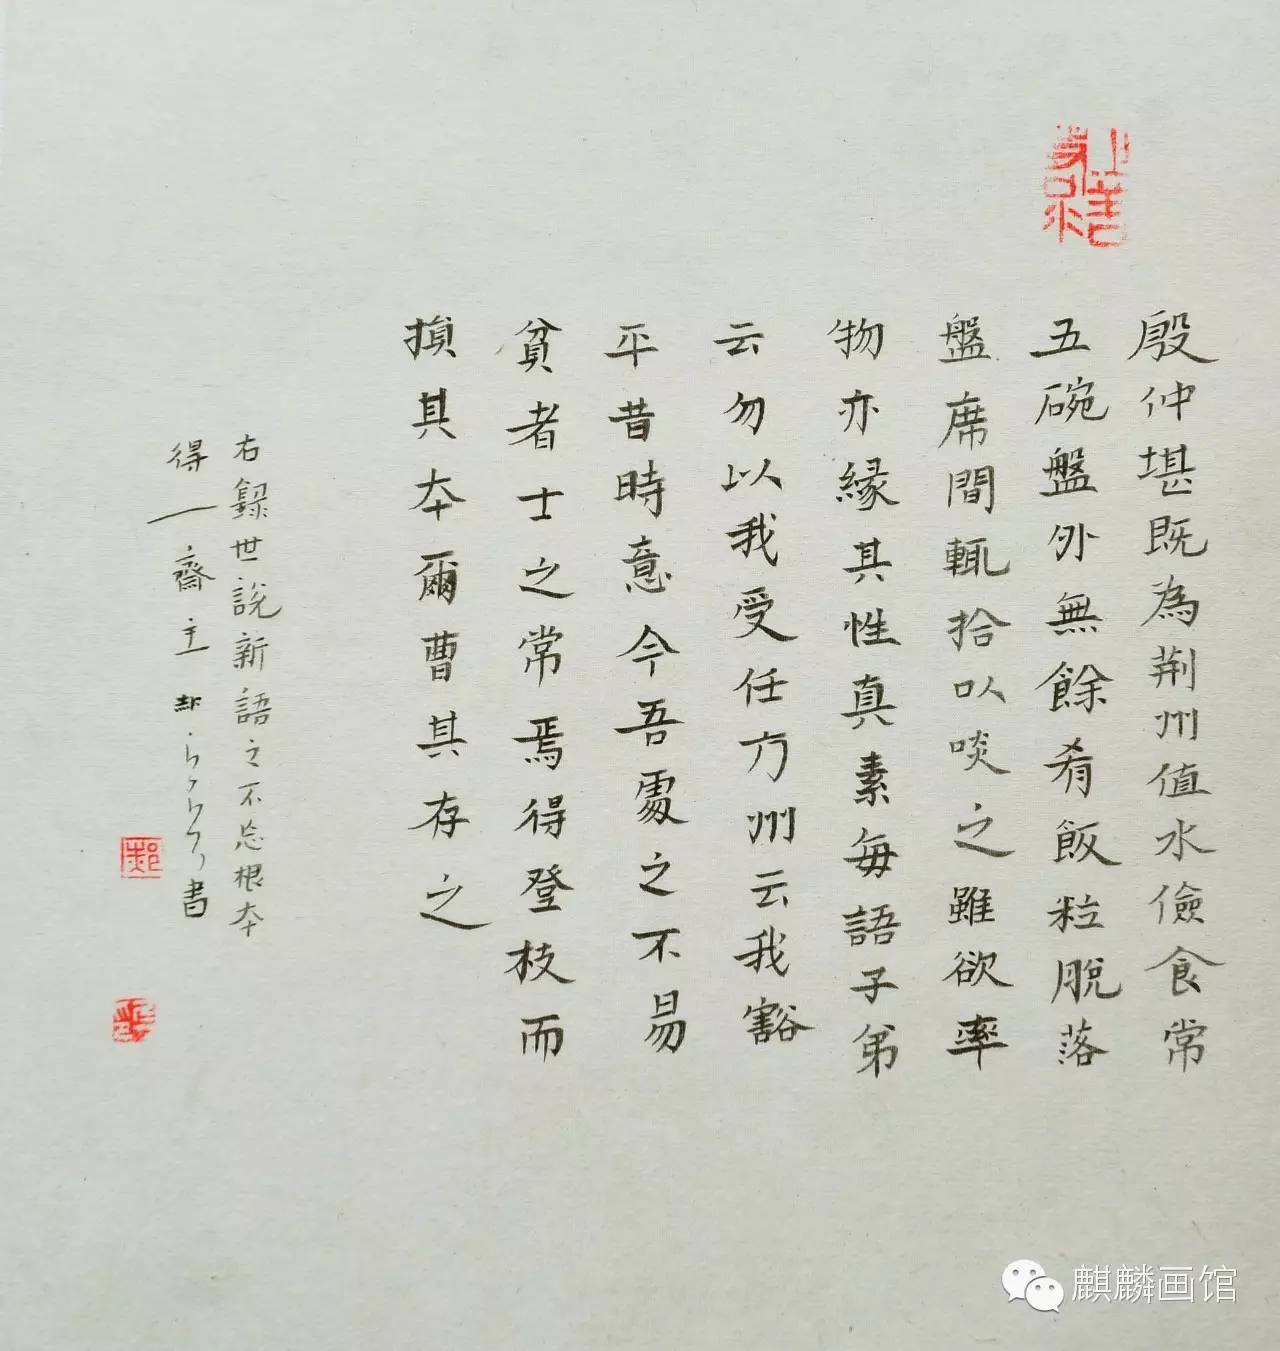 殷仲堪既為荆州值水儉食常
五碗盤外無餘肴飯粒脫落
盤席間輒拾以啖之雖欲率
物亦緣其性真素每語子弟
云勿以我受任方州云我豁
平昔時意今吾處之不易
貧者士之常焉得登枝而
損其本爾曹其存之
右錄世說新語之不忘根本
得一齋主書
麒麟画馆